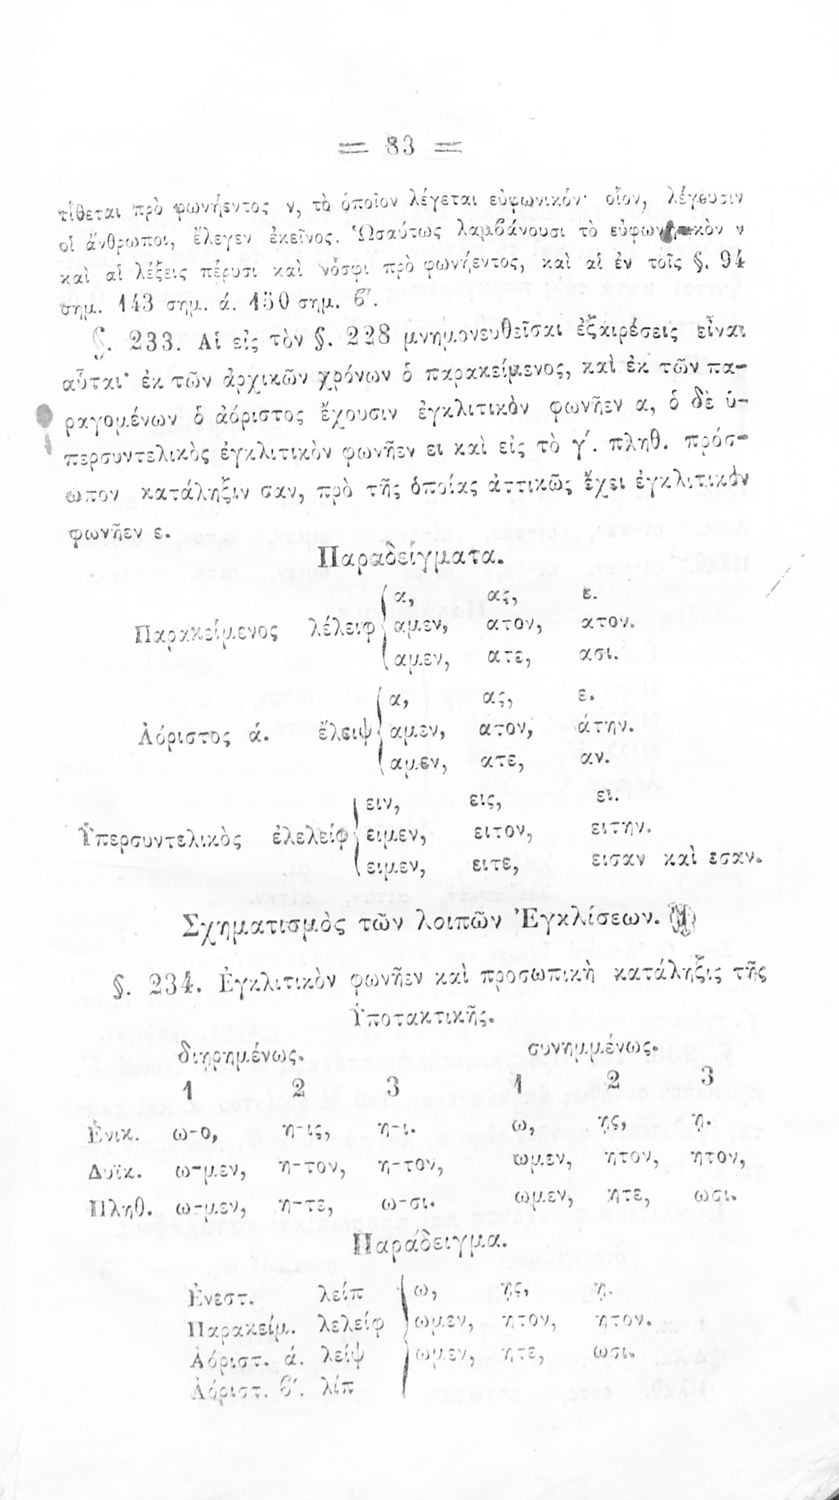 = 83 =
τίθεται πρὸ φωνήεντος ν, τὸ ὁποῖον λέγεται εὐφωνικόν· οἷον, λέγουσιν
οἱ ἄνθρωποι, ἔλεγεν ἐκεῖνος. Ὡσαύτως λαμβάνουσι τὸ εὐφωνικὸν ν
καὶ αἱ λέξεις πέρυσι καὶ νόσφι πρὸ φωνήεντος, καὶ αἱ ἐν τοῖς §. 94
σημ. 143 σημ. ά. 150 σημ. β΄.
§. 233. Αἱ εἰς τὸν §. 228 μνημονευθεῖσαι ἐξαιρέσεις εἶναι
αὗται· ἐκ τῶν ἀρχικῶν χρόνων ὁ παρακείμενος, καὶ ἐκ τῶν πα-
ραγομένων ὁ ἀόριστος ἔχουσιν ἐγκλιτικὸν φωνῆεν α, ὁ δὲ ὑ-
περσυντελικὸς ἐγκλιτικὸν φωνῆεν ει καὶ εἰς τὸ γ΄. πληθ. πρόσ-
ωπον κατάληξιν σαν, πρὸ τῆς ὁποίας ἀττικῶς ἔχει ἐγκλιτικὸν
φωνῆεν ε.
Παραδείγματα.
α, ας, ε.
Παρακείμενος λέλειφ αμεν, ατον, ατον.
αμεν, ατε, ασι.
α, ας, ε.
Ἀόριστος ά. ἔλειψ αμεν, ατον, άτην.
αμεν, ατε, αν.
ειν, εις, ει.
Ὑπερσυντελικὸς ἐλελείφ ειμεν, ειτον, ειτην.
ειμεν, ειτε, εισαν καὶ εσαν.
Σχηματισμὸς τῶν λοιπῶν Ἐγκλίσεων.
§. 234. Ἐγκλιτικὸν φωνῆεν καὶ προσωπικὴ κατάληξις τῆς
Ὑποτακτικῆς.
διῃρημένως. συνημμένως.
1 2 3 1 2 3
Ἑνικ. ω-ο, η-ις, η-ι. ω, ῃς, ῃ.
Δυϊκ. ω-μεν, η-τον, η-τον, ωμεν, ητον, ητον,
Πληθ. ω-μεν, η-τε, ω-σι. ωμεν, ητε, ωσι.
Παράδειγμα.
Ἐνεστ. λείπ ω, ῃς, ῃ.
Παρακείμ. λελείφ ωμεν, ητον, ητον.
Ἀόριστ. ά. λείψ ωμεν, ητε, ωσι.
Ἀόριστ. β΄. λίπ